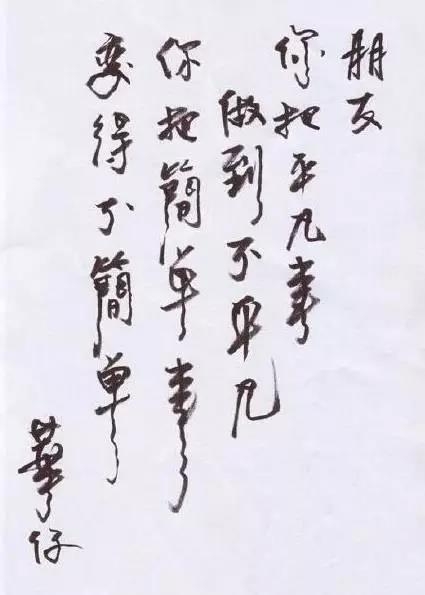 朋友
你把平凡事
做到不平凡
你把簡单事
変得不簡单
華仔